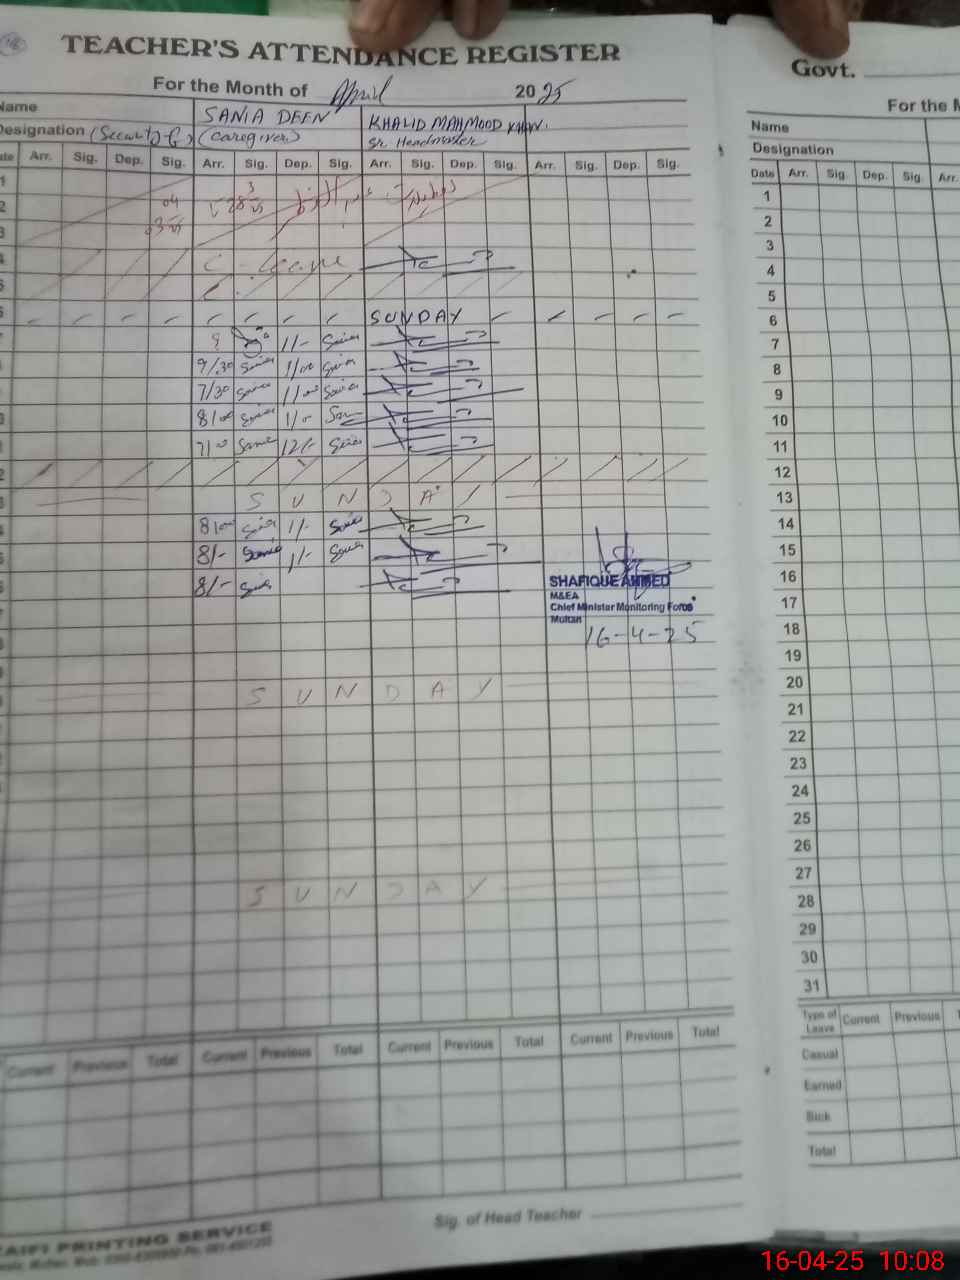 TEACHER'S ATTENDANCE REGISTER
For the Month of April 2025
Name SANIA DEEN KHALID MAHMOOD KHAN.
Designation (Security G) (Caregiver) Sr Headmaster
Arr. Sig. Dep. Sig. Arr. Sig. Dep. Sig. Arr. Sig. Dep. Sig. Arr. Sig. Dep. Sig.
C-Leave
SUNDAY
8 1/- Sania
9/30 Sania 1/00 Sania
7/30 Sania 1/00 Sania
8/00 Sania 1/-
7/00 Sania 12/- Sania
SUNDAY
8/00 Sania 1/- Sania
8/- Sania 1/- Sania
8/- Sania
SHAFIQUE AHMED
M&EA
Chief Minister Monitoring Force
Multan
16-4-25
SUNDAY
SUNDAY
Current Previous Total Current Previous Total Current Previous Total Current Previous Total
Sig. of Head Teacher
PRINTING SERVICE
Govt.
For the
Name
Designation
Date Arr. Sig. Dep. Sig. Arr.
1
2
3
4
5
6
7
8
9
10
11
12
13
14
15
16
17
18
19
20
21
22
23
24
25
26
27
28
29
30
31
Type of Leave Current Previous
Casual
Earned
Sick
Total
16-04-25 10:08